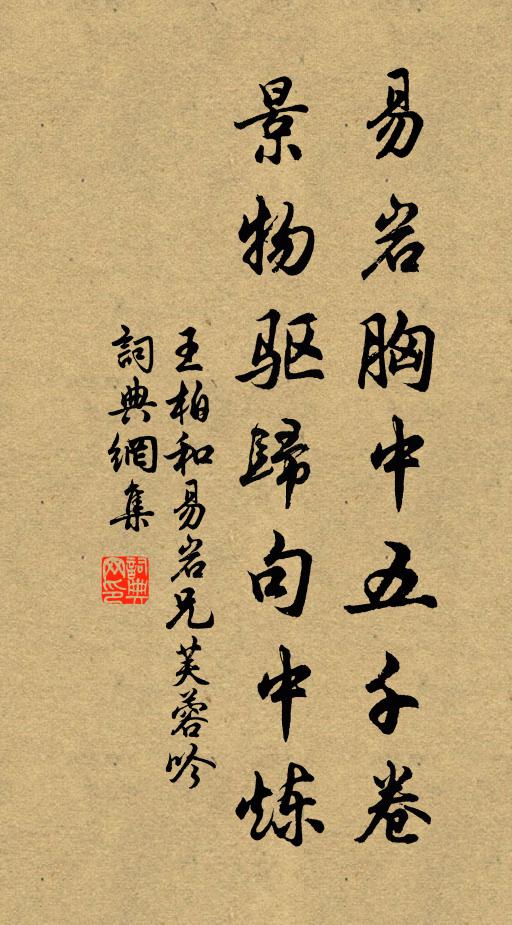 易岩胸中五千卷
景物驱歸句中炼
王柏和易岩兄芙蓉吟
詞典網集
詞典网印